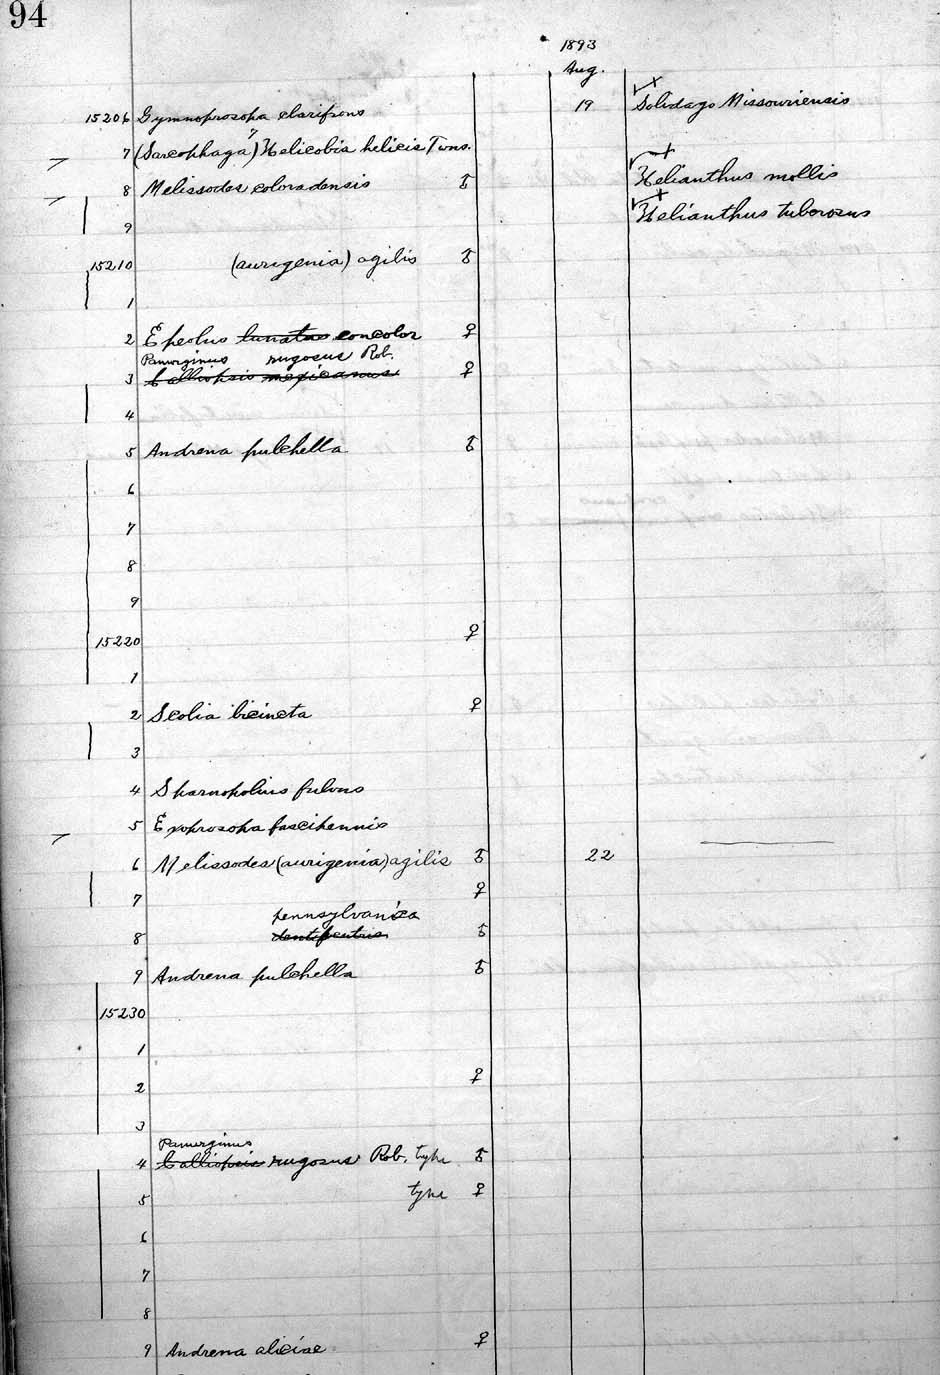 94
1893
Aug.
15206 Gymnoprosopa clarifrons 19 Solidago Missouriensis
7 (Sarcophaga?) Helicobia helicis Twns.
8 Melissodes coloradensis ♂ Helianthus mollis
9 Helianthus tuberosus
15210 (aurigenia) agilis ♂
1
2 Epeolus lunatus concolor ♀
Panurginus rugosus Rob.
3 Calliopsis mexicanus ♀
4
5 Andrena pulchella ♂
6
7
8
9
15220 ♀
1
2 Scolia bicincta ♀
3
4 Sparnopolius fulvus
5 Exoprosopa fascipennis
6 Melissodes (aurigenia) agilis ♂ 22
7 ♀
pennsylvanica
8 dentiventris ♂
9 Andrena pulchella ♂
15230
1
2 ♀
3
Panurginus
4 Calliopsis rugosus Rob. type ♂
5 type ♀
6
7
8
9 Andrena aliciae ♀